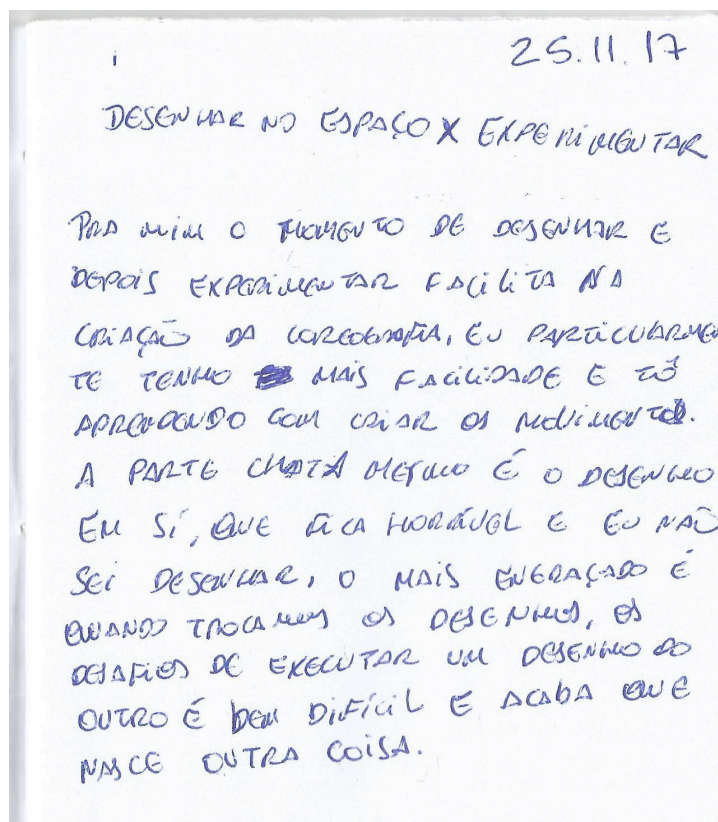 25.11.17
DESENHAR NO ESPAÇO X EXPERIMENTAR
PRA MIM O MOMENTO DE DESENHAR E
DEPOIS EXPERIMENTAR FACILITA NA
CRIAÇÃO DA COREOGRAFIA, EU PARTICULARMEN
TE TENHO MAIS FACILIDADE E TÔ
APRENDENDO COM CRIAR OS MOVIMENTOS.
A PARTE CHATA MESMO É O DESENHO
EM SÍ, QUE FICA HORRÍVEL E EU NÃO
SEI DESENHAR, O MAIS ENGRAÇADO É
QUANDO TROCAMOS OS DESENHOS, OS
DESAFIOS DE EXECUTAR UM DESENHO DO
OUTRO É BEM DIFÍCIL E ACABA QUE
NASCE OUTRA COISA.